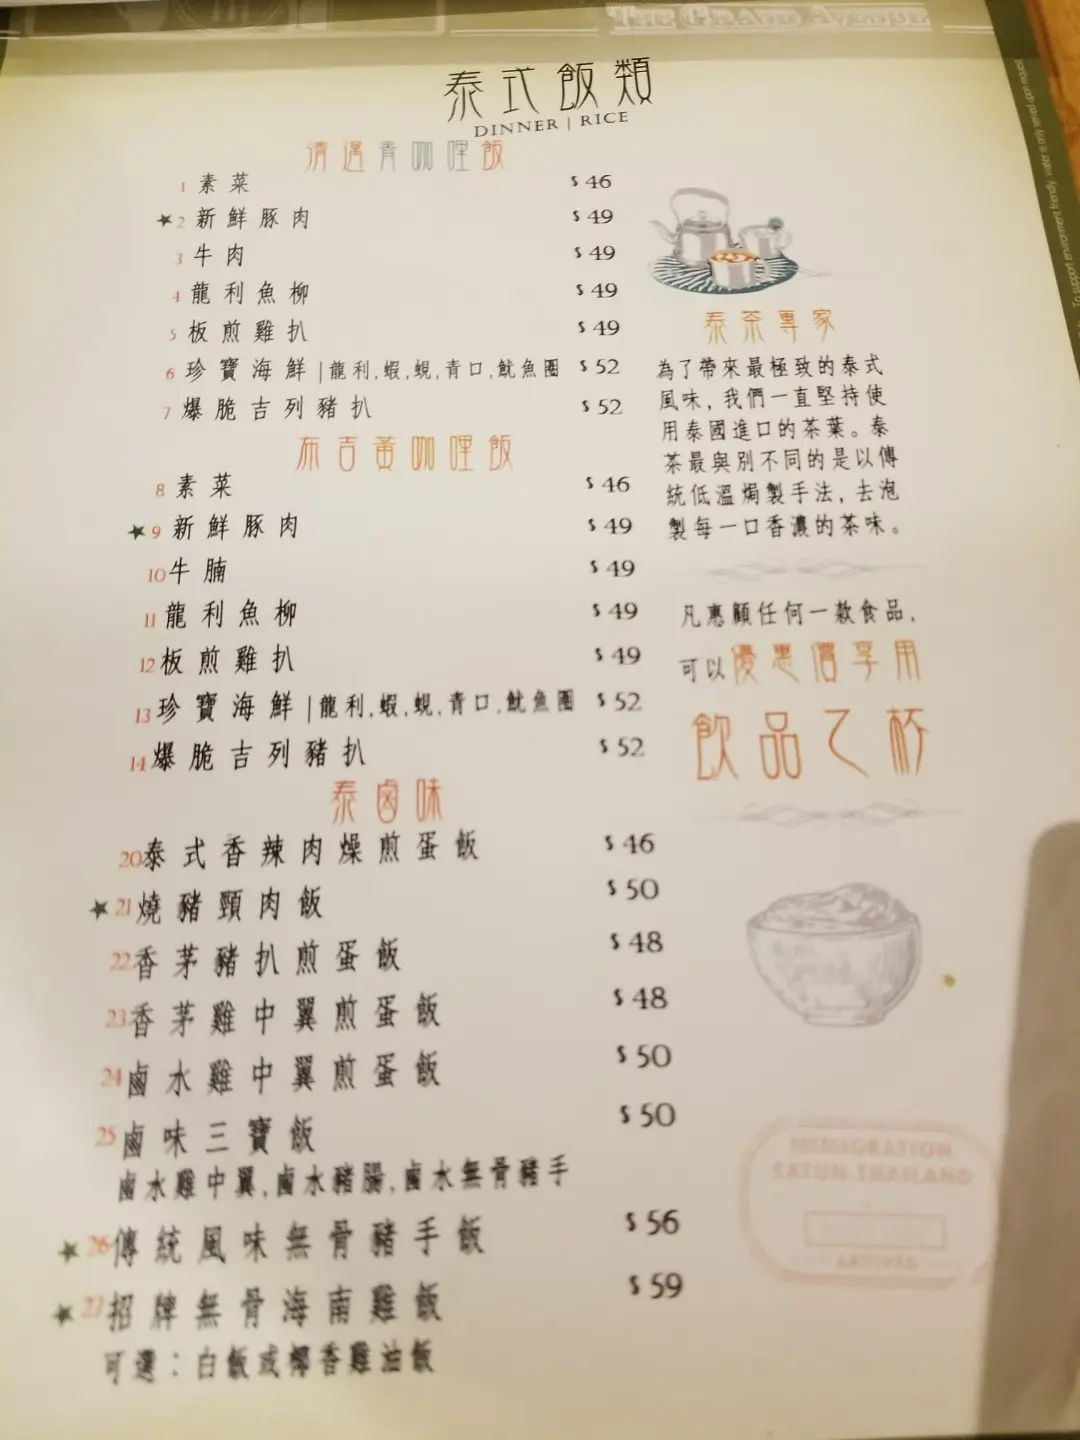 THE GRAND AVENUE
泰式飯類
DINNER | RICE
清邁青咖哩飯
1 素菜 $46
★2 新鮮豚肉 $49
3 牛肉 $49
4 龍利魚柳 $49
5 板煎雞扒 $49
6 珍寶海鮮 | 龍利,蝦,蜆,青口,魷魚圈 $52
7 爆脆吉列豬扒 $52
布吉黃咖哩飯
8 素菜 $46
★9 新鮮豚肉 $49
10 牛腩 $49
11 龍利魚柳 $49
12 板煎雞扒 $49
13 珍寶海鮮 | 龍利,蝦,蜆,青口,魷魚圈 $52
14 爆脆吉列豬扒 $52
泰鹵味
20 泰式香辣肉燥煎蛋飯 $46
★21 燒豬頸肉飯 $50
22 香茅豬扒煎蛋飯 $48
23 香茅雞中翼煎蛋飯 $48
24 鹵水雞中翼煎蛋飯 $50
25 鹵味三寶飯 $50
鹵水雞中翼,鹵水豬腸,鹵水無骨豬手
★26 傳統風味無骨豬手飯 $56
★27 招牌無骨海南雞飯 $59
可選：白飯或椰香雞油飯
泰茶專家
為了帶來最極致的泰式
風味，我們一直堅持使
用泰國進口的茶葉。泰
茶最與別不同的是以傳
統低溫焗製手法，去泡
製每一口香濃的茶味。
凡惠顧任何一款食品，
可以優惠價享用
飲品乙杯
IMMIGRATION
SATUN THAILAND
ARRIVED
To support environment friendly, water is only served upon request.